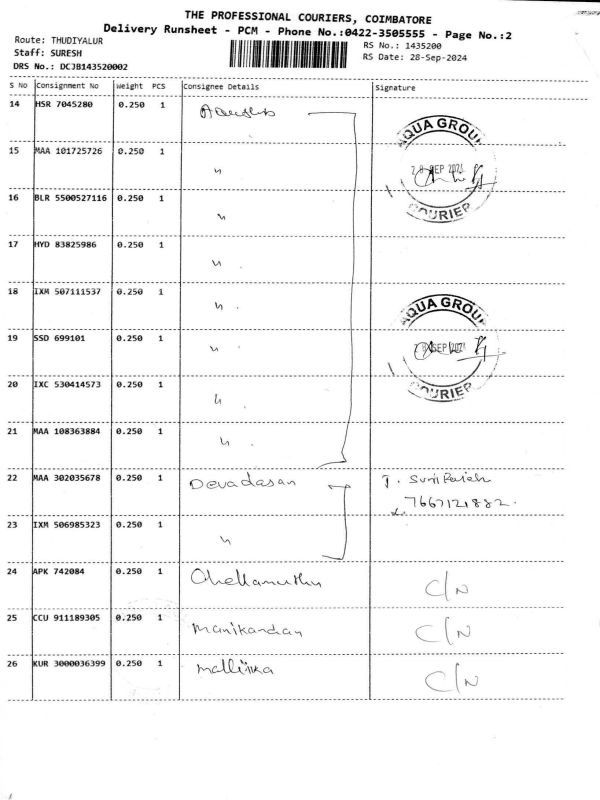 THE PROFESSIONAL COURIERS, COIMBATORE
Delivery Runsheet - PCM - Phone No.:0422-3505555 - Page No.:2
Route: THUDIYALUR
Staff: SURESH
DRS No.: DCJB143520002
RS No.: 1435200
RS Date: 28-Sep-2024
S No Consignment No Weight PCS Consignee Details Signature
14 HSR 7045280 0.250 1
AQUA GROUP
COURIER
15 MAA 101725726 0.250 1 "
16 BLR 5500527116 0.250 1 "
17 HYD 83825986 0.250 1 "
18 IXM 507111537 0.250 1 "
AQUA GROUP
COURIER
19 SSD 699101 0.250 1 "
20 IXC 530414573 0.250 1 "
21 MAA 108363884 0.250 1 "
22 MAA 302035678 0.250 1 Devadasan
7667121882.
23 IXM 506985323 0.250 1 "
24 APK 742084 0.250 1 Chellamuthu C/N
25 CCU 911189305 0.250 1 Manikandan C/N
26 KUR 3000036399 0.250 1 Mallika C/N